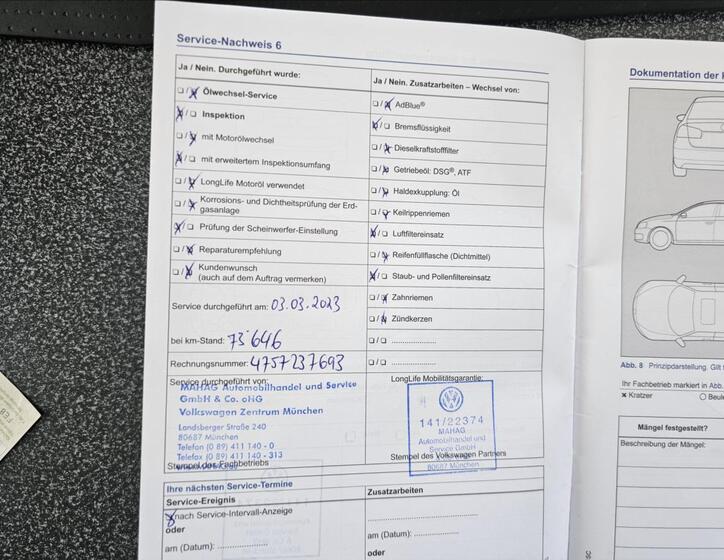 Service-Nachweis 6
Ja / Nein. Durchgeführt wurde:
Ölwechsel-Service
Inspektion
mit Motorölwechsel
mit erweitertem Inspektionsumfang
LongLife Motoröl verwendet
Korrosions- und Dichtheitsprüfung der Erd-
gasanlage
Prüfung der Scheinwerfer-Einstellung
Reparaturempfehlung
Kundenwunsch
(auch auf dem Auftrag vermerken)
Service durchgeführt am: 03.03.2023
bei km-Stand: 73'646
Rechnungsnummer: 4757237693
Ja / Nein. Zusatzarbeiten – Wechsel von:
AdBlue®
Bremsflüssigkeit
Dieselkraftstofffilter
Getriebeöl: DSG®, ATF
Haldexkupplung: Öl
Keilrippenriemen
Luftfiltereinsatz
Reifenfüllflasche (Dichtmittel)
Staub- und Pollenfiltereinsatz
Zahnriemen
Zündkerzen
Service durchgeführt von:
MAHAG Automobilhandel und Service
GmbH & Co. oHG
Volkswagen Zentrum München
Landsberger Straße 240
80687 München
Telefon (0 89) 411 140 - 0
Telefax (0 89) 411 140 - 313
Stempel des Fachbetriebs
LongLife Mobilitätsgarantie:
141/22374
MAHAG
Automobilhandel und
Service GmbH
Stempel des Volkswagen Partners
80687 München
Ihre nächsten Service-Termine
Service-Ereignis
nach Service-Intervall-Anzeige
oder
am (Datum):
Zusatzarbeiten
am (Datum):
oder
Dokumentation der
Abb. 8 Prinzipdarstellung. Gilt
Ihr Fachbetrieb markiert in Abb.
Kratzer
Mängel festgestellt?
Beschreibung der Mängel: